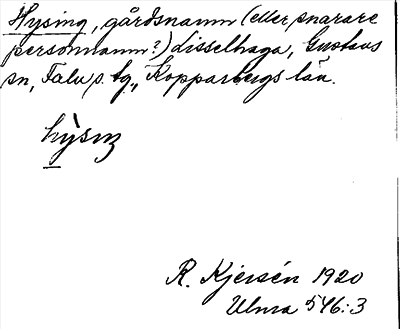 Hysing, gårdsnamn (eller snarare
personnamn?) disselhaga, Gustavs
sn, Falu s. tg., Kopparbergs län.
hy̆sıŋ
R. Kjersén 1920
Ulma 546:3